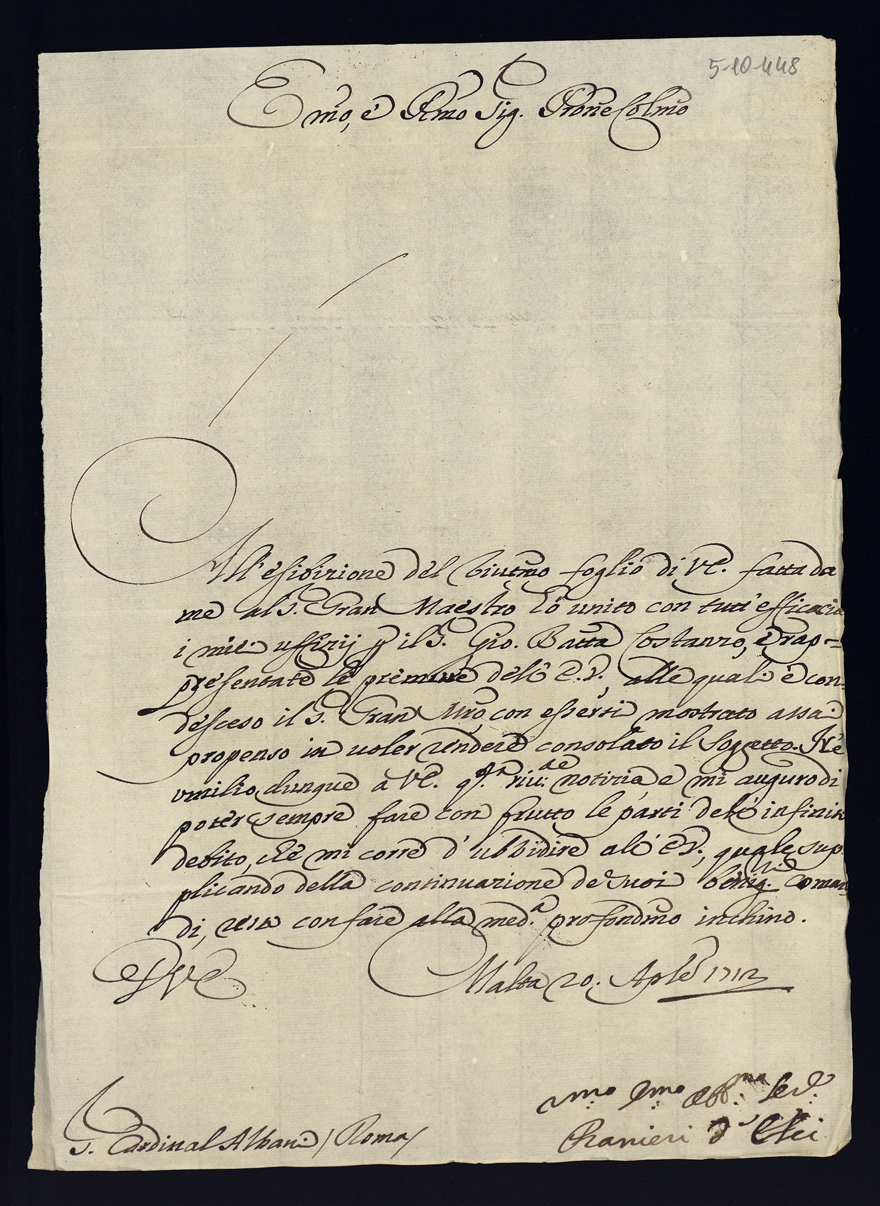 5-10-448
Emo, è Rmo Sig. Prone Colmo
All'esibizione del Giustmo foglio di VE. fatta da
me al S. Gran Maestro hò unito con tutt'efficacia
i miei uffizij p il S. Gio. Batta Costanzo, è rap-
presentate le premure dell'E.V., alle quali è con-
desceso il S. Gran Mro, con essersi mostrato assai
propenso in voler rendere consolato il Soggetto. Nè
umilio dunque à VE. qsta riu.te notizia e mi auguro di
poter sempre fare con frutto le parti dell'infinito
debito, chè mi corre d'ubbidire all'E.V., quale sup
plicando della continuazione de suoi benig.mi coman
di, resto con fare alla med.a profondmo inchino.
D V E
Malta 20. Aple 1712
S. Cardinal Albani / Roma /
Vmo Dmo Obb.mo Ser.e
Ranieri d'Elci